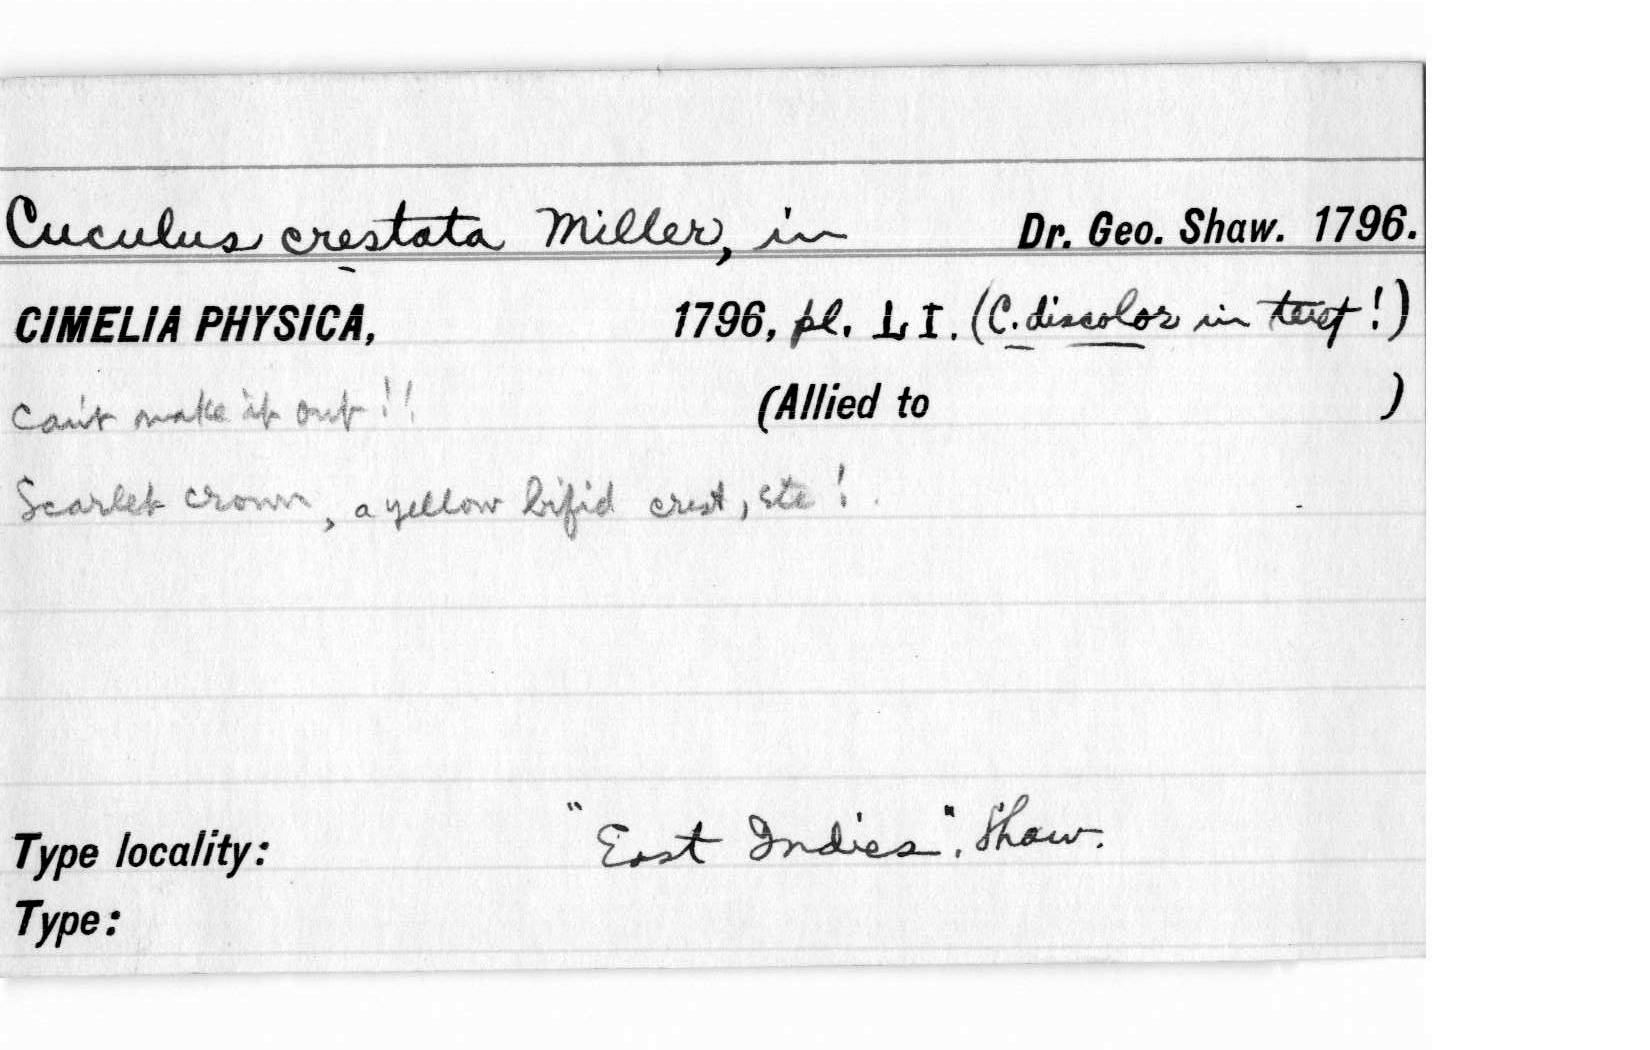 Cuculus crestata Miller, in Dr. Geo. Shaw. 1796.
CIMELIA PHYSICA, 1796, pl. LI. (C. discolor in text!)
Can't make it out!! (Allied to )
Scarlet crown, a yellow bifid crest, etc!.
Type locality: "East Indies". Shaw.
Type: